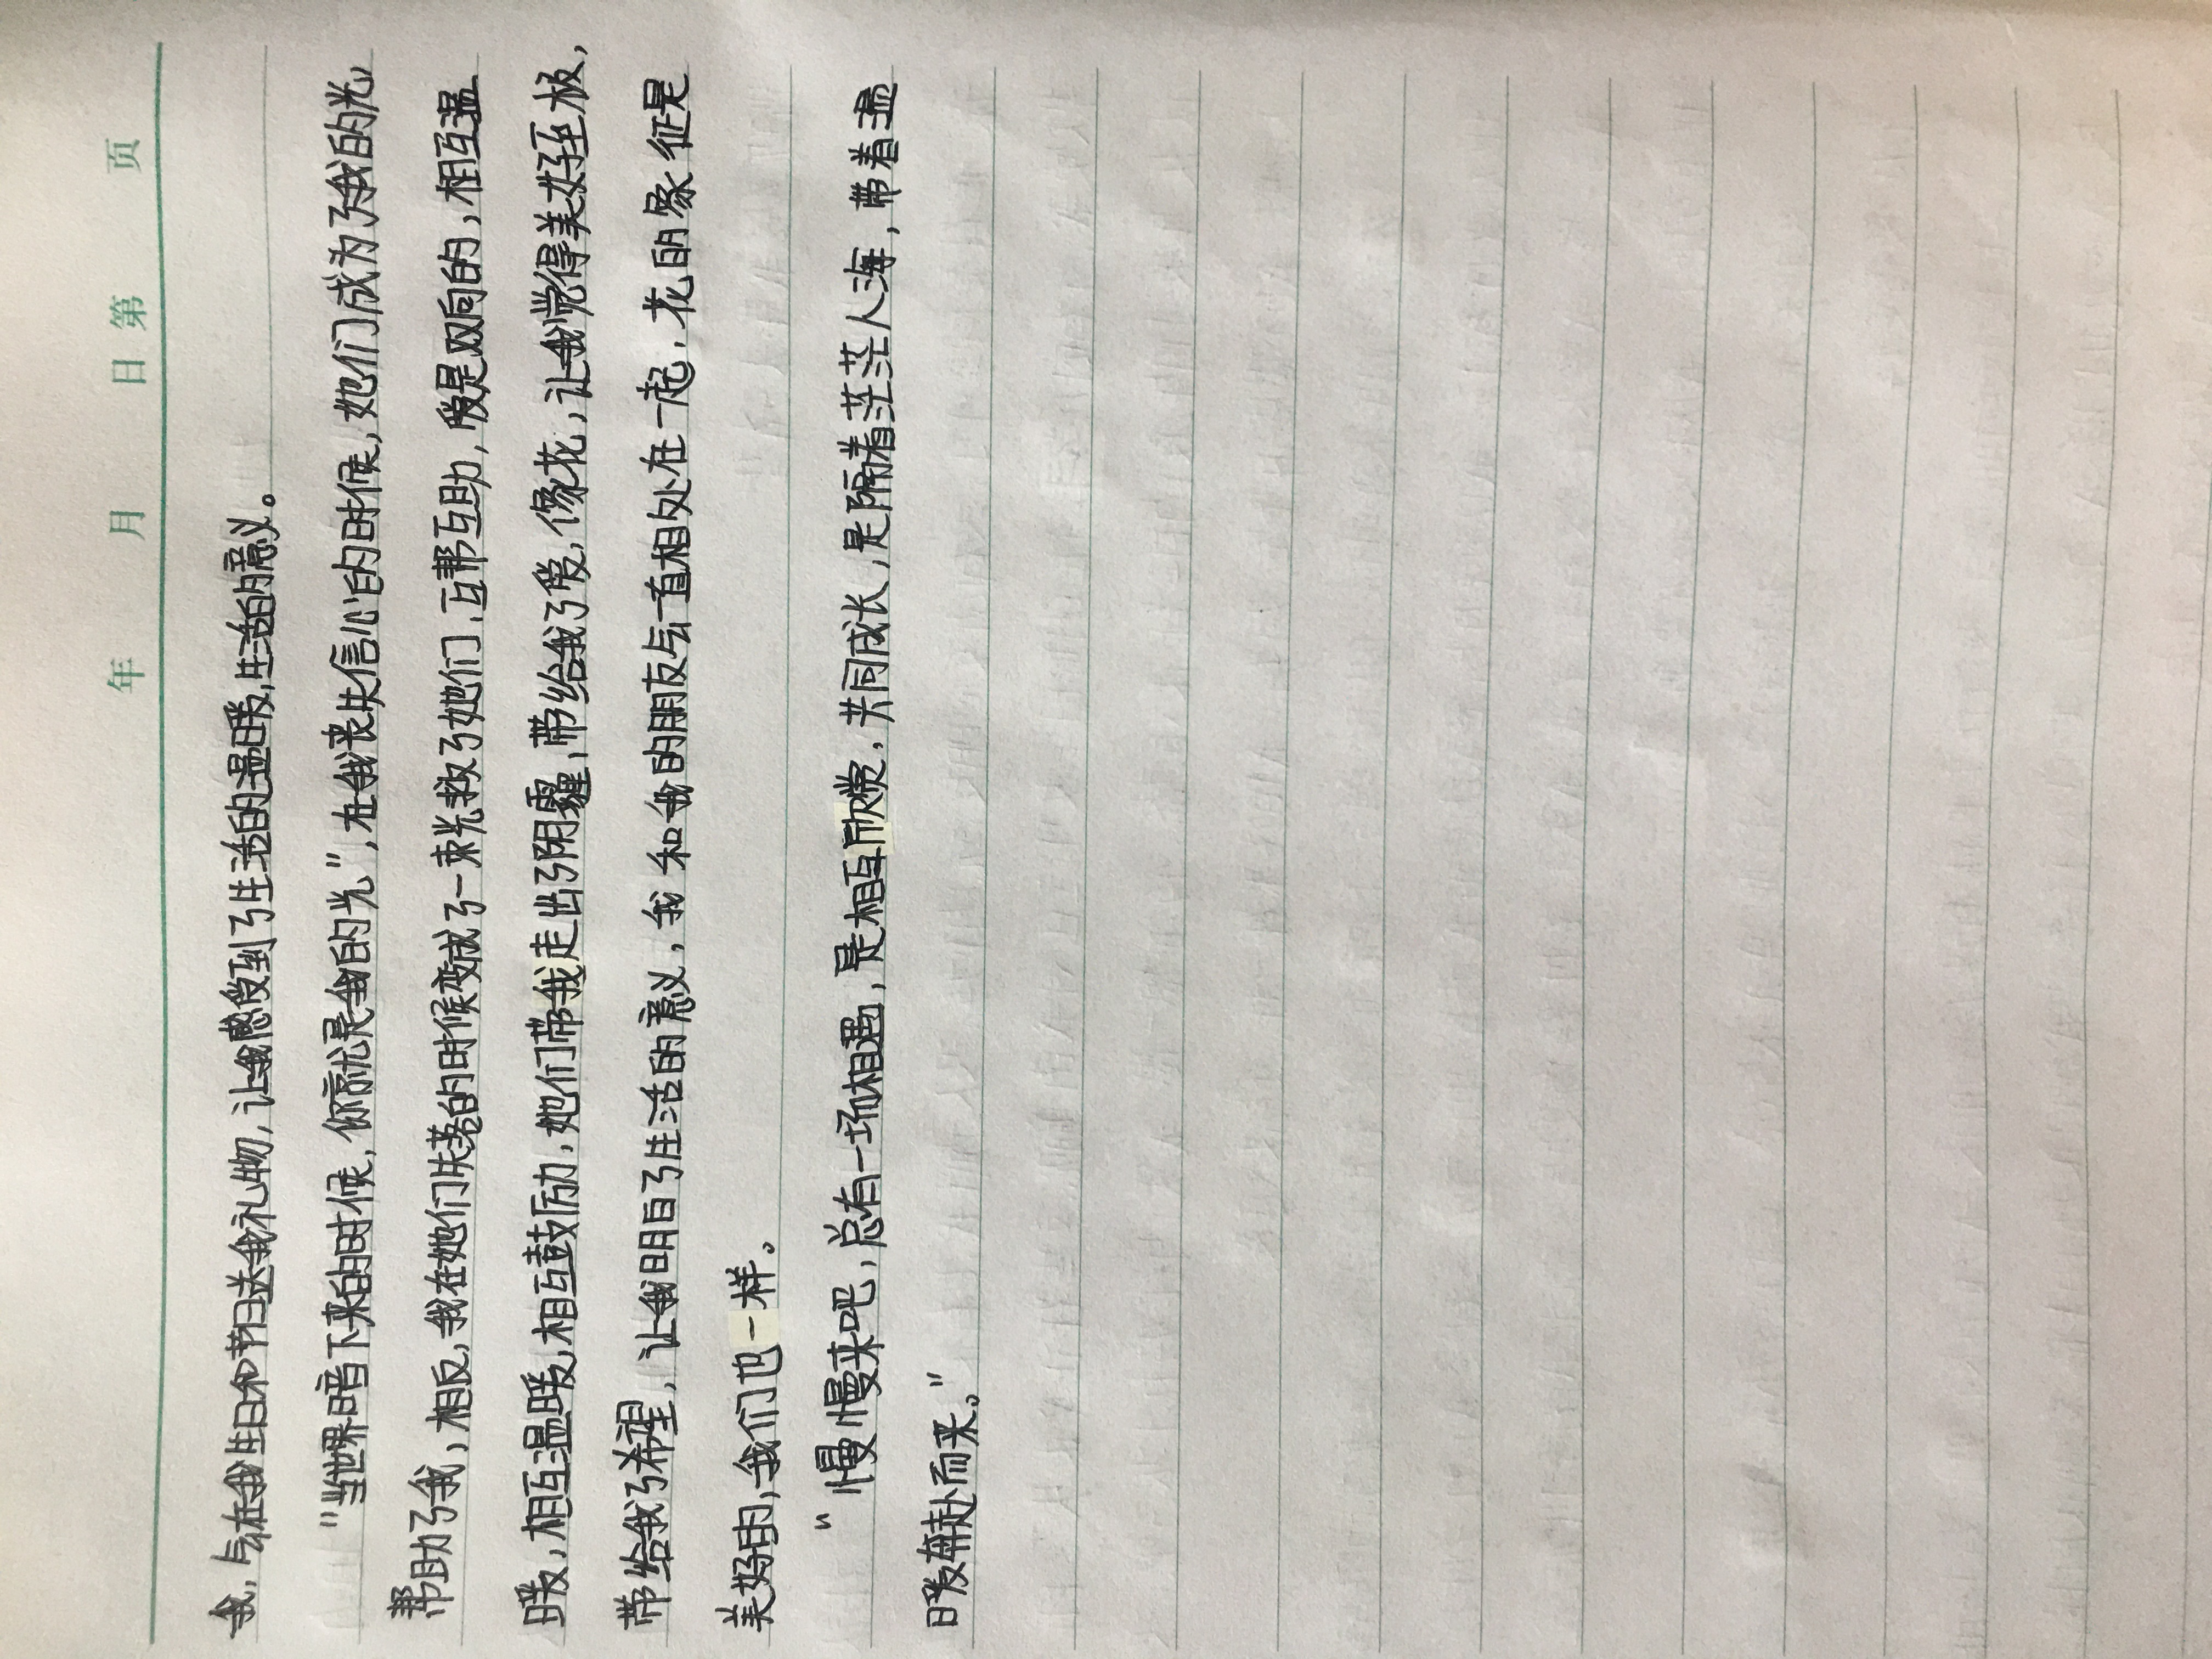 年 月 日 第 页
我，会在我生日和节日送我礼物，让我感受到了生活的温暖，生活的意义。
“当世界暗下来的时候，你就是我的光”，在我丧失信心的时候，她们成为了我的光，
帮助了我，相反，我在她们失落的时候变成了一束光救了她们，互帮互助，爱是双向的，相互温
暖，相互温暖，相互鼓励，她们带我走出了阴霾，带给我了爱，像花，让我觉得美好至极，
带给我了希望，让我明白了生活的意义，我和我的朋友会一直相处在一起，花的象征是
美好的，我们也一样。
“慢慢来吧，总有一场相遇，是相互欣赏，共同成长，是隔着茫茫人海，带着温
暖奔赴而来。”